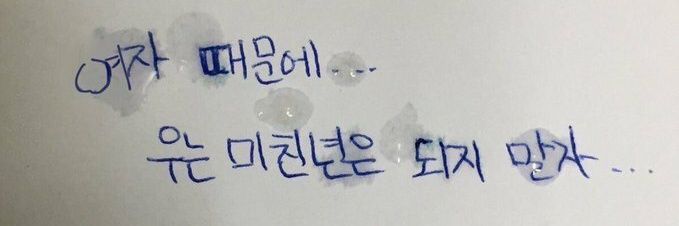 여자 때문에...
우는 미친년은 되지 말자...